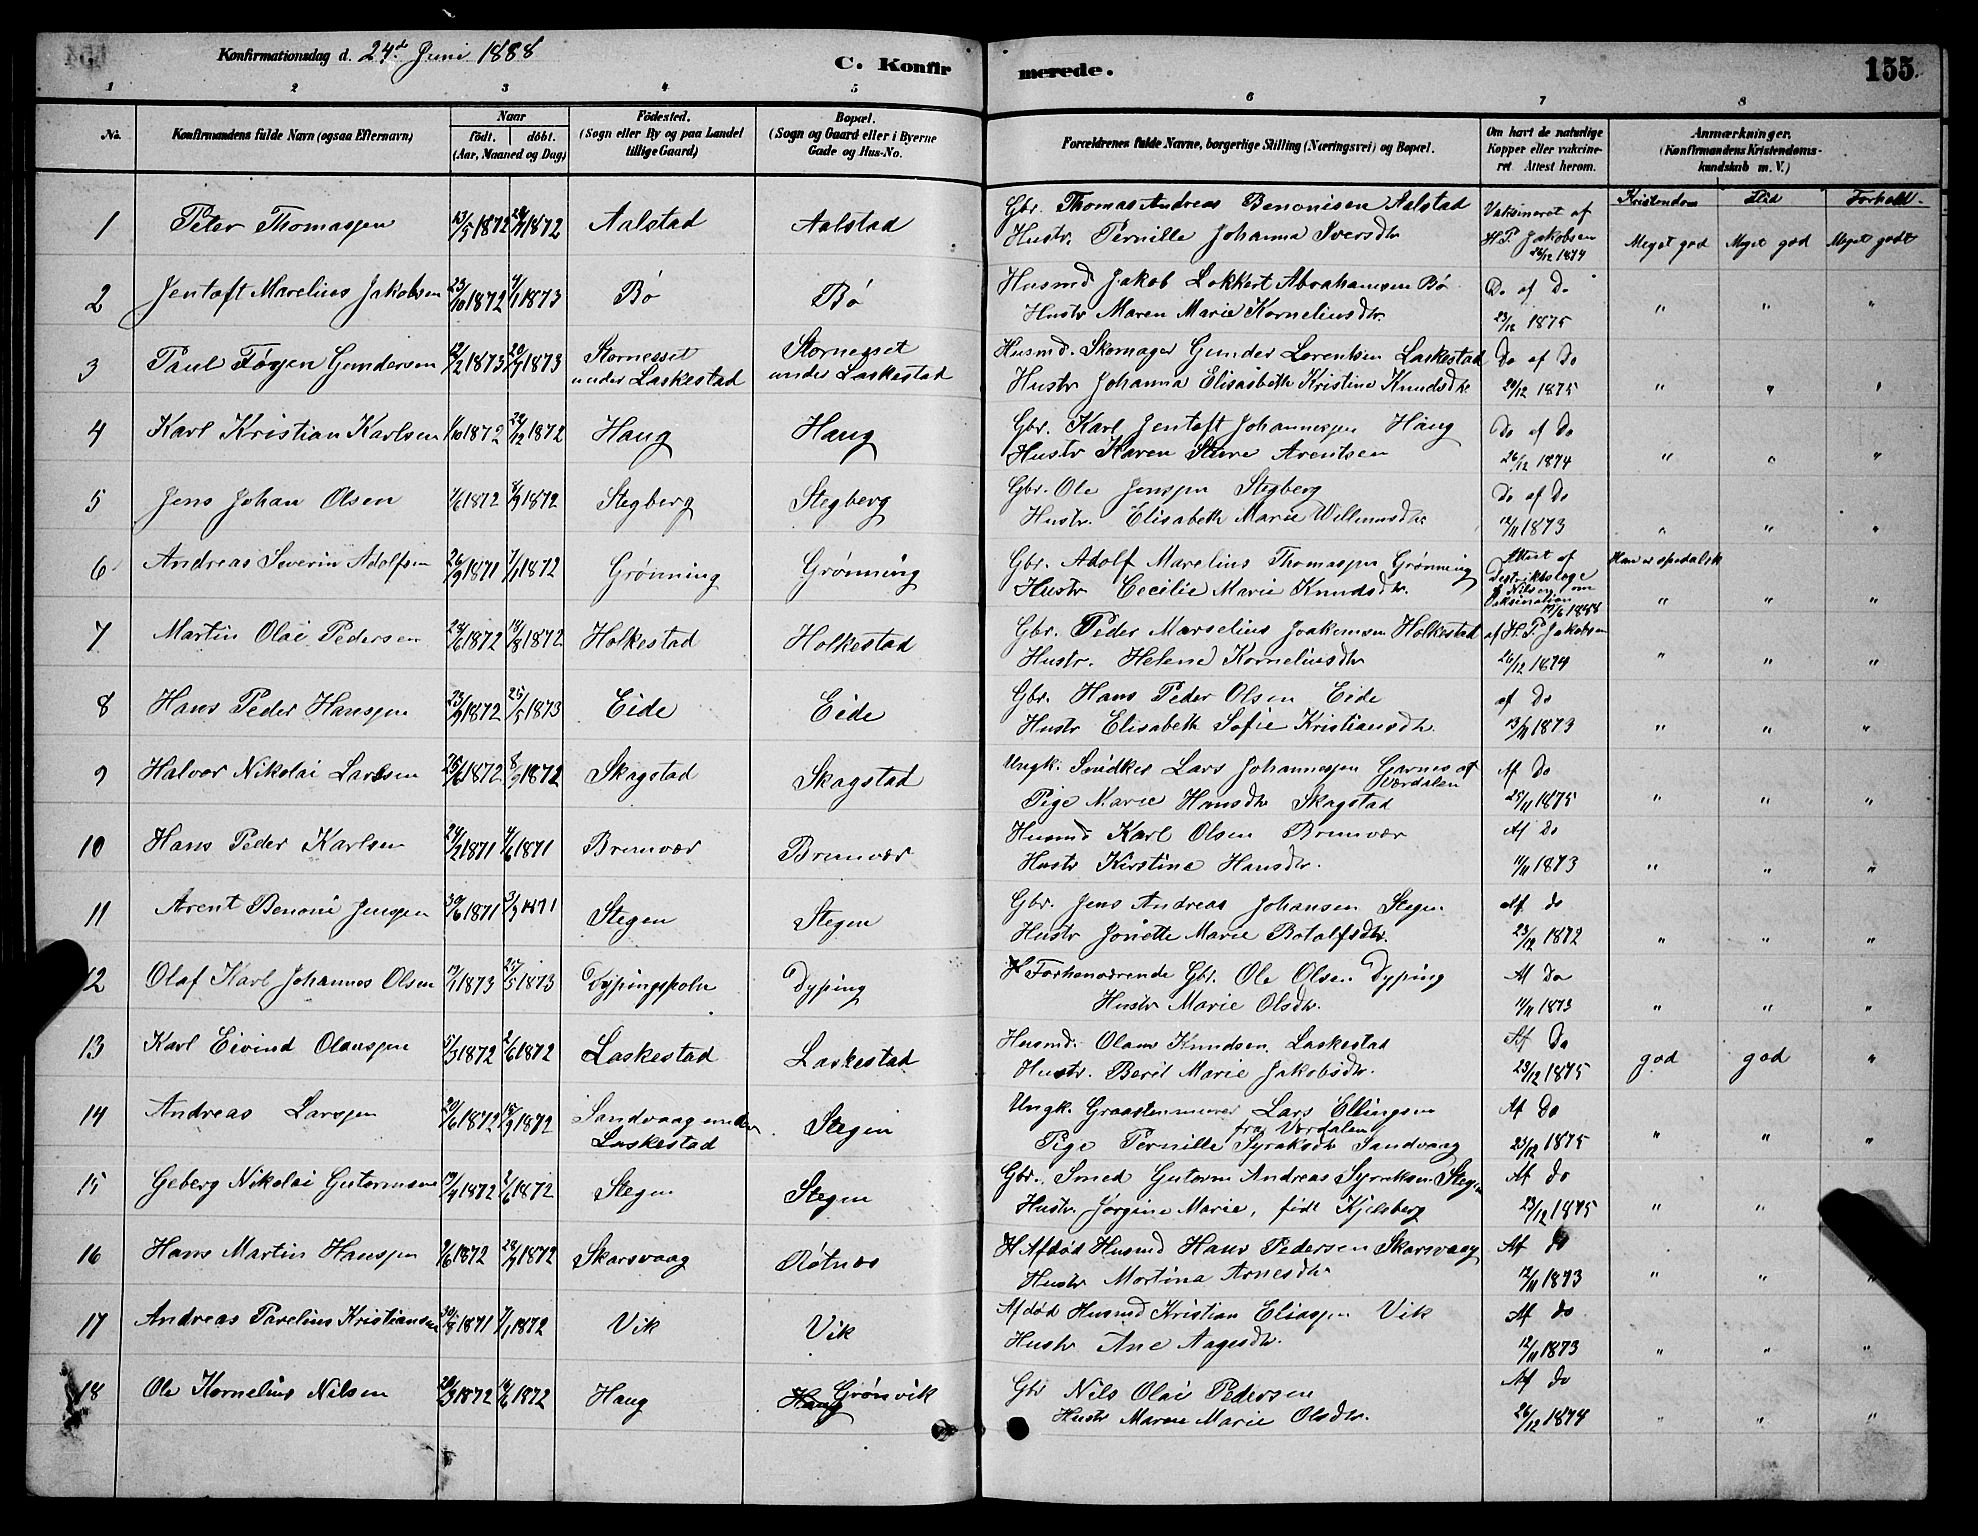 Konfirmationsdag d. 24de Juni 1888
C. Konfirmerede.
155.
1 2 3 4 5 6 7 8
No.
Konfirmandens fulde Navn (ogsaa Efternavn)
Naar
født. døbt.
(Aar, Maaned og Dag)
Fødested.
(Sogn eller By og paa Landet
tillige Gaard)
Bopæl.
(Sogn og Gaard eller i Byerne
Gade og Hus-No.
Forældrenes fulde Navne, borgerlige Stilling (Næringsvei) og Bopæl.
Om havt de naturlige
Kopper eller vaksine-
ret Attest herom.
Anmærkninger.
(Konfirmandens Kristendoms-
kundskab m. V.)
Kristendom Flid Forhold.
1 Peter Thomassen 13/5 1872 1872 Aalstad Aalstad Gbr. Thomas Andreas Benonisen Aalstad Vaksineret af
Hustr. Pernille Johanna Iversdtr H.P. Jakobsen Meget god Meget god Meget godt
28/12 1874
2 Jentoft Marelius Jakobsen 23/10 1872 1873 Bø Bø Husmd Jakob Lokkert Abrahamsen Bø Do af Do
Hustr Maren Marie Korneliusdtr. 23/12 1875 " " "
3 Paul Føgen Gundersen 12/2 1873 20/7 1873 Stornesset under Laskestad Stornesset under Laskestad Husmd. Skomager Gunder Lorentsen Laskestad Do af Do
Hustr Johanna Elisabeth Kristine Knudsdtr 1875 " " "
4 Karl Kristian Karlsen 1/10 1872 29/12 1872 Haug Haug Gbr. Karl Jentoft Johannessen Haug Do af Do
Hustr Karen Arentsen 26/12 1874 " " "
5 Jens Johan Olsen 1/6 1872 8/9 1872 Stegberg Stegberg Gbr. Ole Jenssen Stegberg Do af Do
Hustr. Elisabeth Marie Willumsdtr 12/11 1873 " " "
6 Andreas Severin Adolfsen 26/9 1871 7/1 1872 Grønning Grønning Gbr. Adolf Marelius Thomassen Grønning Attest af Han er spedalsk
Hustr Cecilie Marie Knudsdtr. Distriktslæge Nilsen om
Vaksination 1888 " " "
7 Martin Olai Pedersen 28/6 1872 18/8 1872 Holkestad Holkestad Gbr. Peder Marselius Joakimsen Holkestad af H.P. Jakobsen
Hustr. Helene Korneliusdtr 26/12 1874 " " "
8 Hans Peder Hanssen 23/9 1872 25/5 1873 Eide Eide Gbr. Hans Peder Olsen Eide af Do
Hustr Elisabeth Sofie Kristiansdtr. 13/11 1873 " " "
9 Halvor Nikolai Larssen 25/6 1872 8/9 1872 Skagstad Skagstad Ungk. Snidker Lars Johannessen Garnes af Værdalen Af Do
Pige Marie Hansdtr Skagstad 25/11 1875 " " "
10 Hans Peder Karlsen 24/2 1871 4/6 1871 Brunvær Brunvær Husmd Karl Olsen Brunvær Af Do
Hustr Kirstine Hansdtr. 11/11 1873 " " "
11 Arent Benoni Jenssen 30/6 1871 3/9 1871 Stegen Stegen Gbr. Jens Andreas Johansen Stegen Af do
Hustr Jonette Marie Botolfsdtr. 23/12 1872 " " "
12 Olaf Karl Johannes Olsen 1873 25/5 1873 Dyping Forhenværende Gbr. Ole Olsen Dyping Af Do
Hustr Marie Olsdtr. 11/11 1873 " " "
13 Karl Eivind Olaussen 1872 2/6 1872 Laskestad Laskestad Husmd. Olaus Knudsen Laskestad Af Do
Hustr. Berit Marie Jakobsdtr. 23/12 1875 god god "
14 Andreas Larssen 20/6 1872 15/9 1872 Sandvaag under Laskestad Stegen Ungk. Graastensmurer Lars Ellingsen fra Værdalen Af Do
Pige Pernille Syraksdtr Sandvaag 23/12 1875 " " "
15 Geberg Nikolai Gutormsen 1872 2/6 1872 Stegen Stegen Gbr. Smed Gutorm Andreas Syraksen Stegen Af do
Hustr. Jørgine Marie, født Kjelsberg 23/12 1875 " "
16 Hans Martin Hanssen 1872 28/7 1872 Skarsvaag Røtnes Afdød Husmd Hans Pedersen Skarsvaag Af do
Hustr Martina Arnesdtr 12/11 1873 " " "
17 Andreas Parelius Kristiansen 30/8 1871 7/1 1872 Vik Vik Afdød Husmd Kristian Eliassen Vik Af do
Hustr Ane Aagesdtr. 12/11 1873 " " "
18 Ole Kornelius Nilsen 1872 1872 Haug Haug Grønvik Gbr Nils Olai Pedersen Af do
Hustr Maren Marie Olsdtr. 26/12 1874 " " "